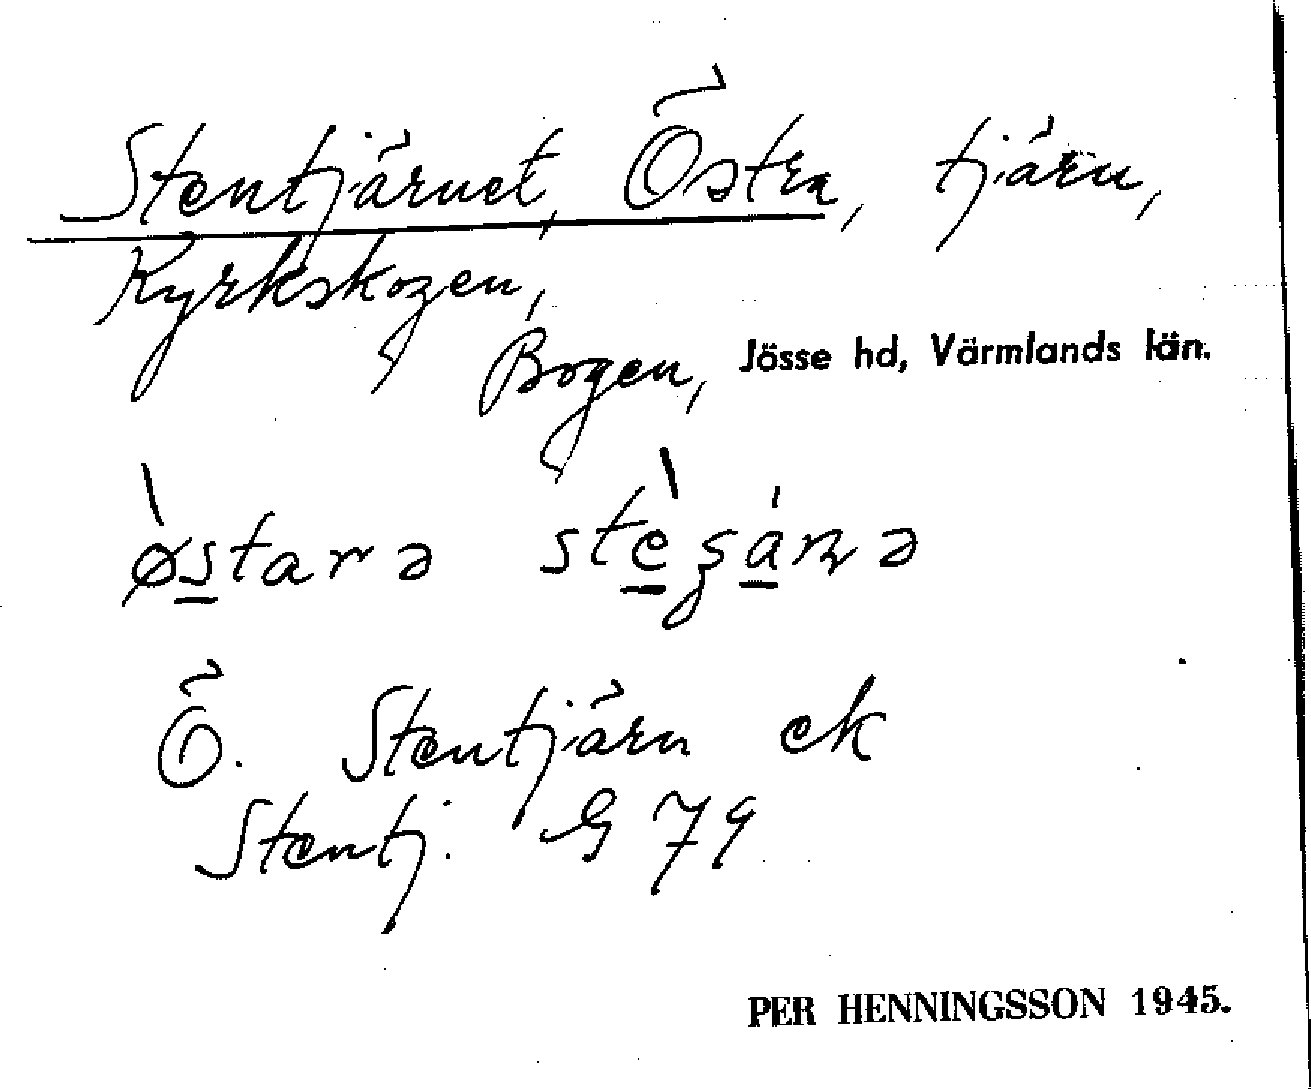 Stentjärnet, Östra, tjärn,
Kyrkskogen,
Bogen, Jösse hd, Värmlands län.
ø̀starə stèşáɳə
Ö. Stentjärn ek
Stentj. G 79
PER HENNINGSSON 1945.